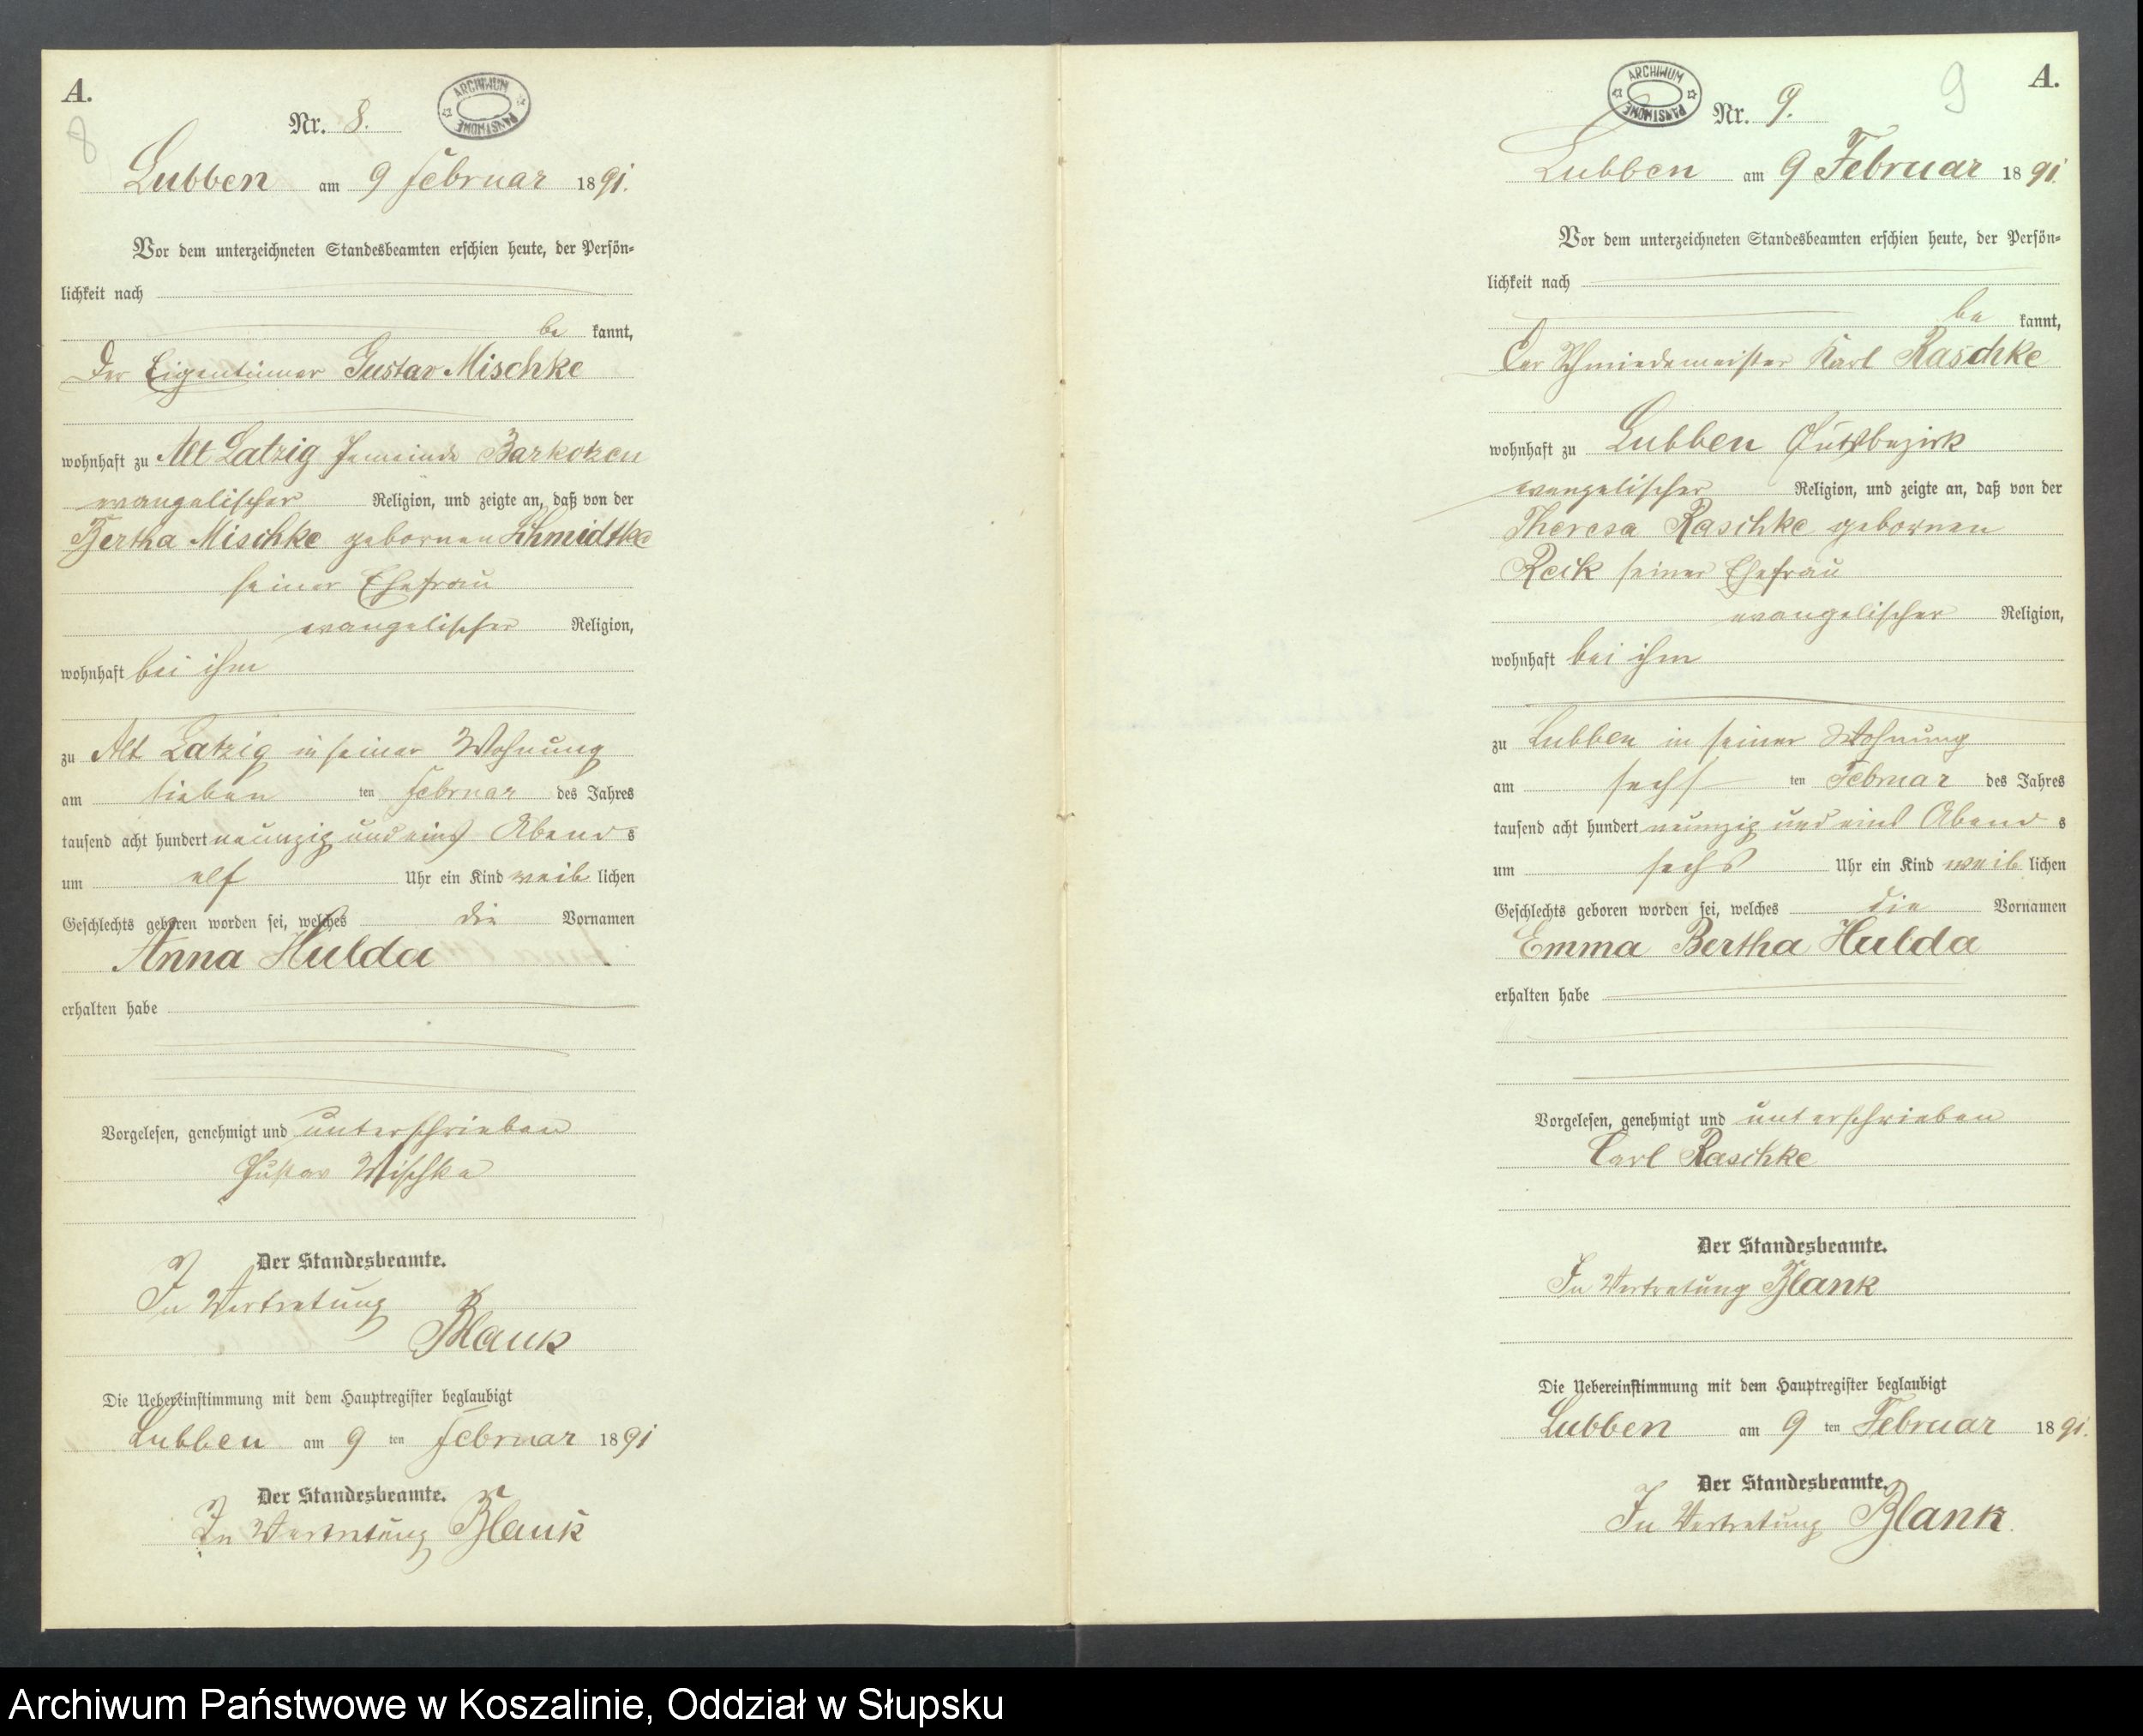 A.
8
Nr. 8.
ARCHIWUM PAŃSTWOWE
Lubben am 9 Februar 1891.
Vor dem unterzeichneten Standesbeamten erschien heute, der Persön-
lichkeit nach
be kannt,
Der Eigentümer Gustav Mischke
wohnhaft zu Alt Latzig Gemeinde Barkotzen
evangelischer Religion, und zeigte an, daß von der
Bertha Mischke gebornen Schmidtke
seiner Ehefrau
evangelischer Religion,
wohnhaft bei ihm
zu Alt Latzig in seiner Wohnung
am sieben ten Februar des Jahres
tausend acht hundert neunzig und eins Abends
um elf Uhr ein Kind weiblichen
Geschlechts geboren worden sei, welches die Vornamen
Anna Hulda
erhalten habe
Vorgelesen, genehmigt und unterschrieben
Gustav Mischke
Der Standesbeamte.
In Vertretung
Blank
Die Uebereinstimmung mit dem Hauptregister beglaubigt
Lubben am 9 ten Februar 1891
Der Standesbeamte.
In Vertretung Blank
A.
9
ARCHIWUM PAŃSTWOWE
Nr. 9.
Lubben am 9 Februar 1891.
Vor dem unterzeichneten Standesbeamten erschien heute, der Persön-
lichkeit nach
be kannt,
Der Schmiedemeister Karl Raschke
wohnhaft zu Lubben Gutsbezirk
evangelischer Religion, und zeigte an, daß von der
Theresa Raschke gebornen
Reik seiner Ehefrau
evangelischer Religion,
wohnhaft bei ihm
zu Lubben in seiner Wohnung
am sechs ten Februar des Jahres
tausend acht hundert neunzig und eins Abends
um sechs Uhr ein Kind weiblichen
Geschlechts geboren worden sei, welches die Vornamen
Emma Bertha Hulda
erhalten habe
Vorgelesen, genehmigt und unterschrieben
Carl Raschke
Der Standesbeamte.
In Vertretung Blank
Die Uebereinstimmung mit dem Hauptregister beglaubigt
Lubben am 9 ten Februar 1891.
Der Standesbeamte.
In Vertretung Blank.
Archiwum Państwowe w Koszalinie, Oddział w Słupsku